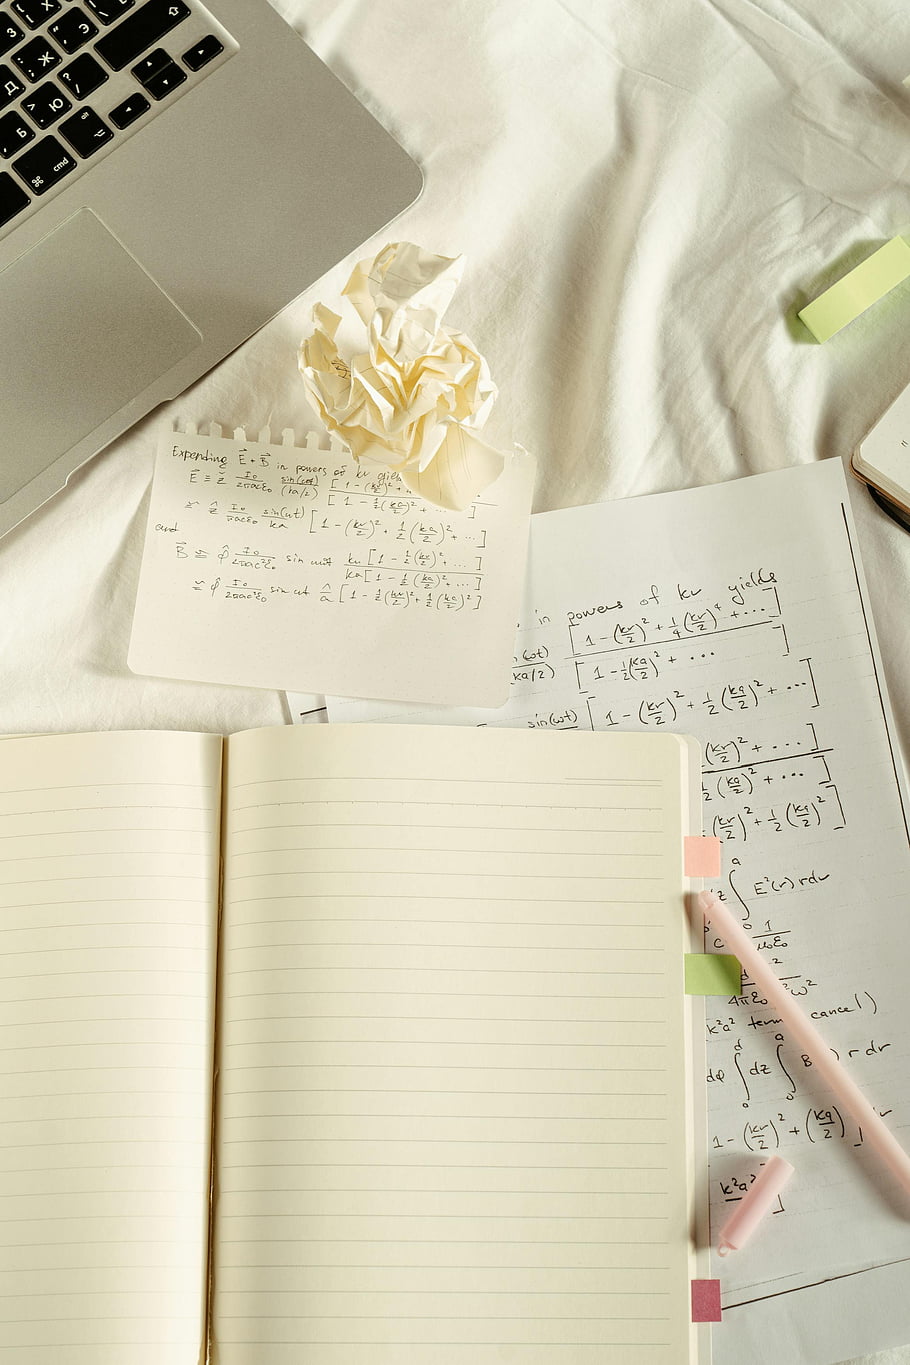 З
Э
Х
Ж
Д
Ю
Б
cmd
Expending E⃗ + B⃗ in powers of kr
E⃗ ≅ ẑ I₀/2πacε₀ sin(ωt)/(ka/2) [1 - (kr/2)² +
[1 - ½(ka/2)² + ...]
≃ ẑ I₀/πacε₀ sin(ωt)/ka [1 - (kr/2)² + ½(ka/2)² + ...]
and
B⃗ ≅ φ̂ I₀/2πac²ε₀ sin ωt kr[1 - ½(kr/2)² + ...]/ka[1 - ½(ka/2)² + ...]
≃ φ̂ I₀/2πac²ε₀ sin ωt r/a [1 - ½(kr/2)² + ½(ka/2)² + ...]
in powers of kr yields
(ωt)/(ka/2) [1 - (kr/2)² + ¼(kr/2)⁴ + ...]
[1 - ½(ka/2)² + ...]
sin(ωt) [1 - (kr/2)² + ½(ka/2)² + ...]
(kr/2)² + ...]
½(ka/2)² + ...]
(kr/2)² + ½(ka/2)²]
dz ∫₀ᵃ E²(r) r dr
1/μ₀ε₀
4πε₀ ω²
k²a² term cancel)
dφ ∫₀ᵈ dz ∫₀ᵃ B r dr
1 - (kr/2)² + (ka/2)² ] dr
k²a² ]